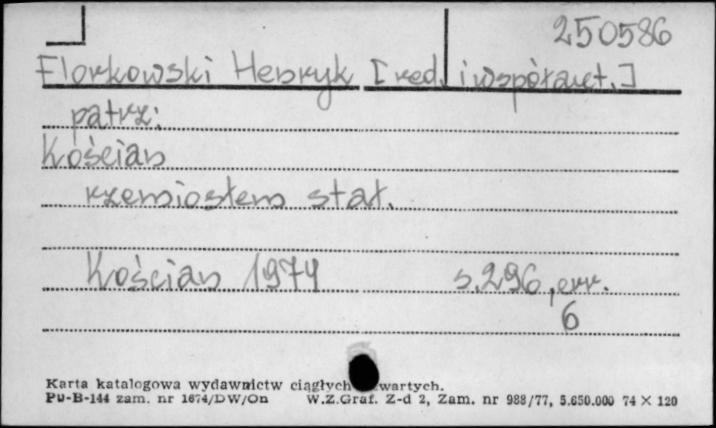 250586
Florkowski Henryk [red. i współaut.]
patrz:
Kościan
rzemiosłem stał.
Kościan 1974 s. 296, err.
6
Karta katalogowa wydawnictw ciągłych wartych.
PU-B-144 zam. nr 1674/DW/On W.Z.Graf. Z-d 2, Zam. nr 988/77, 5.650.000 74 X 120